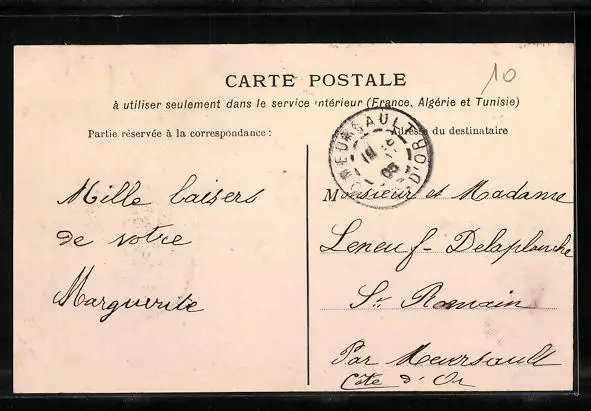 CARTE POSTALE
10
à utiliser seulement dans le service intérieur (France, Algérie et Tunisie)
Partie réservée à la correspondance :
Adresse du destinataire
MEURSAULT
CÔTE D'OR
05
Mille baisers
de votre
Marguerite
Monsieur et Madame
Leneuf-Delaplanche
St Romain
Par Meursault
Côte d'Or